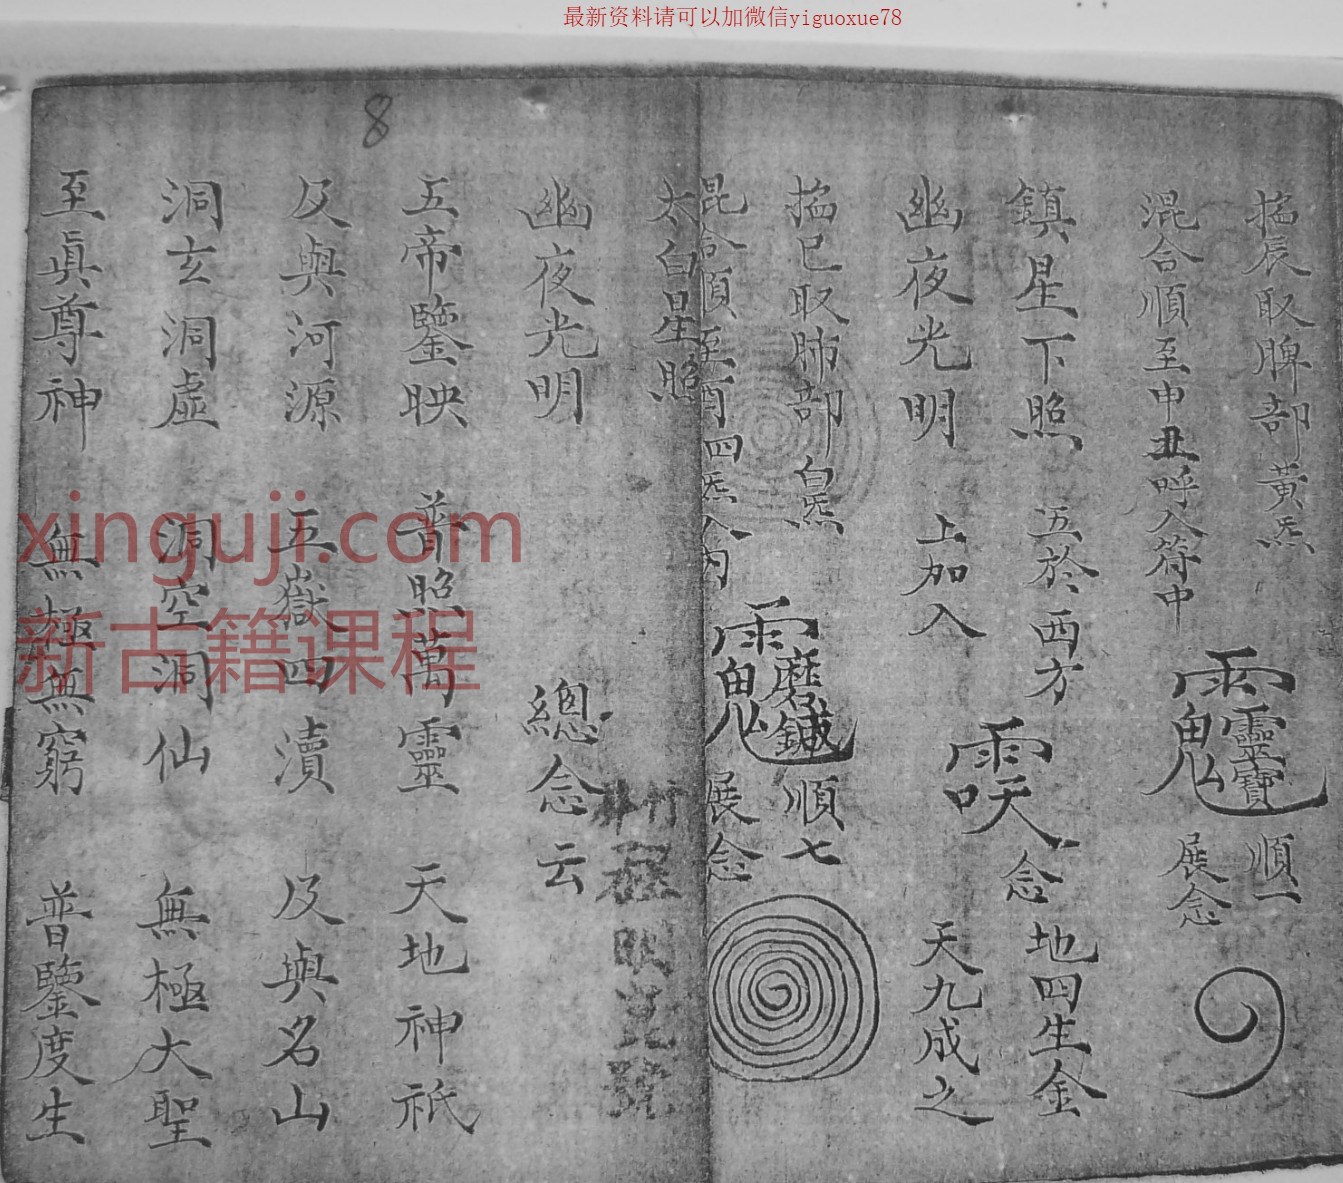 最新资料请可以加微信yiguoxue78
8
掐辰取脾部黃炁
混合順至申丑呼入符中
靈寶 順一
展念
鎮星下照 五於西方
念地四生金
幽夜光明 上加入
天九成之
掐巳取肺部白炁
順七
混合順至酉四炁入內
展念
太白星照
幽夜光明 總念云
五帝鑒映 普照萬靈 天地神祇
及與河源 五嶽四瀆 及與名山
洞玄洞虛 洞空洞仙 無極大聖
至真尊神 無極無窮 普鑒度生
xinguji.com
新古籍课程